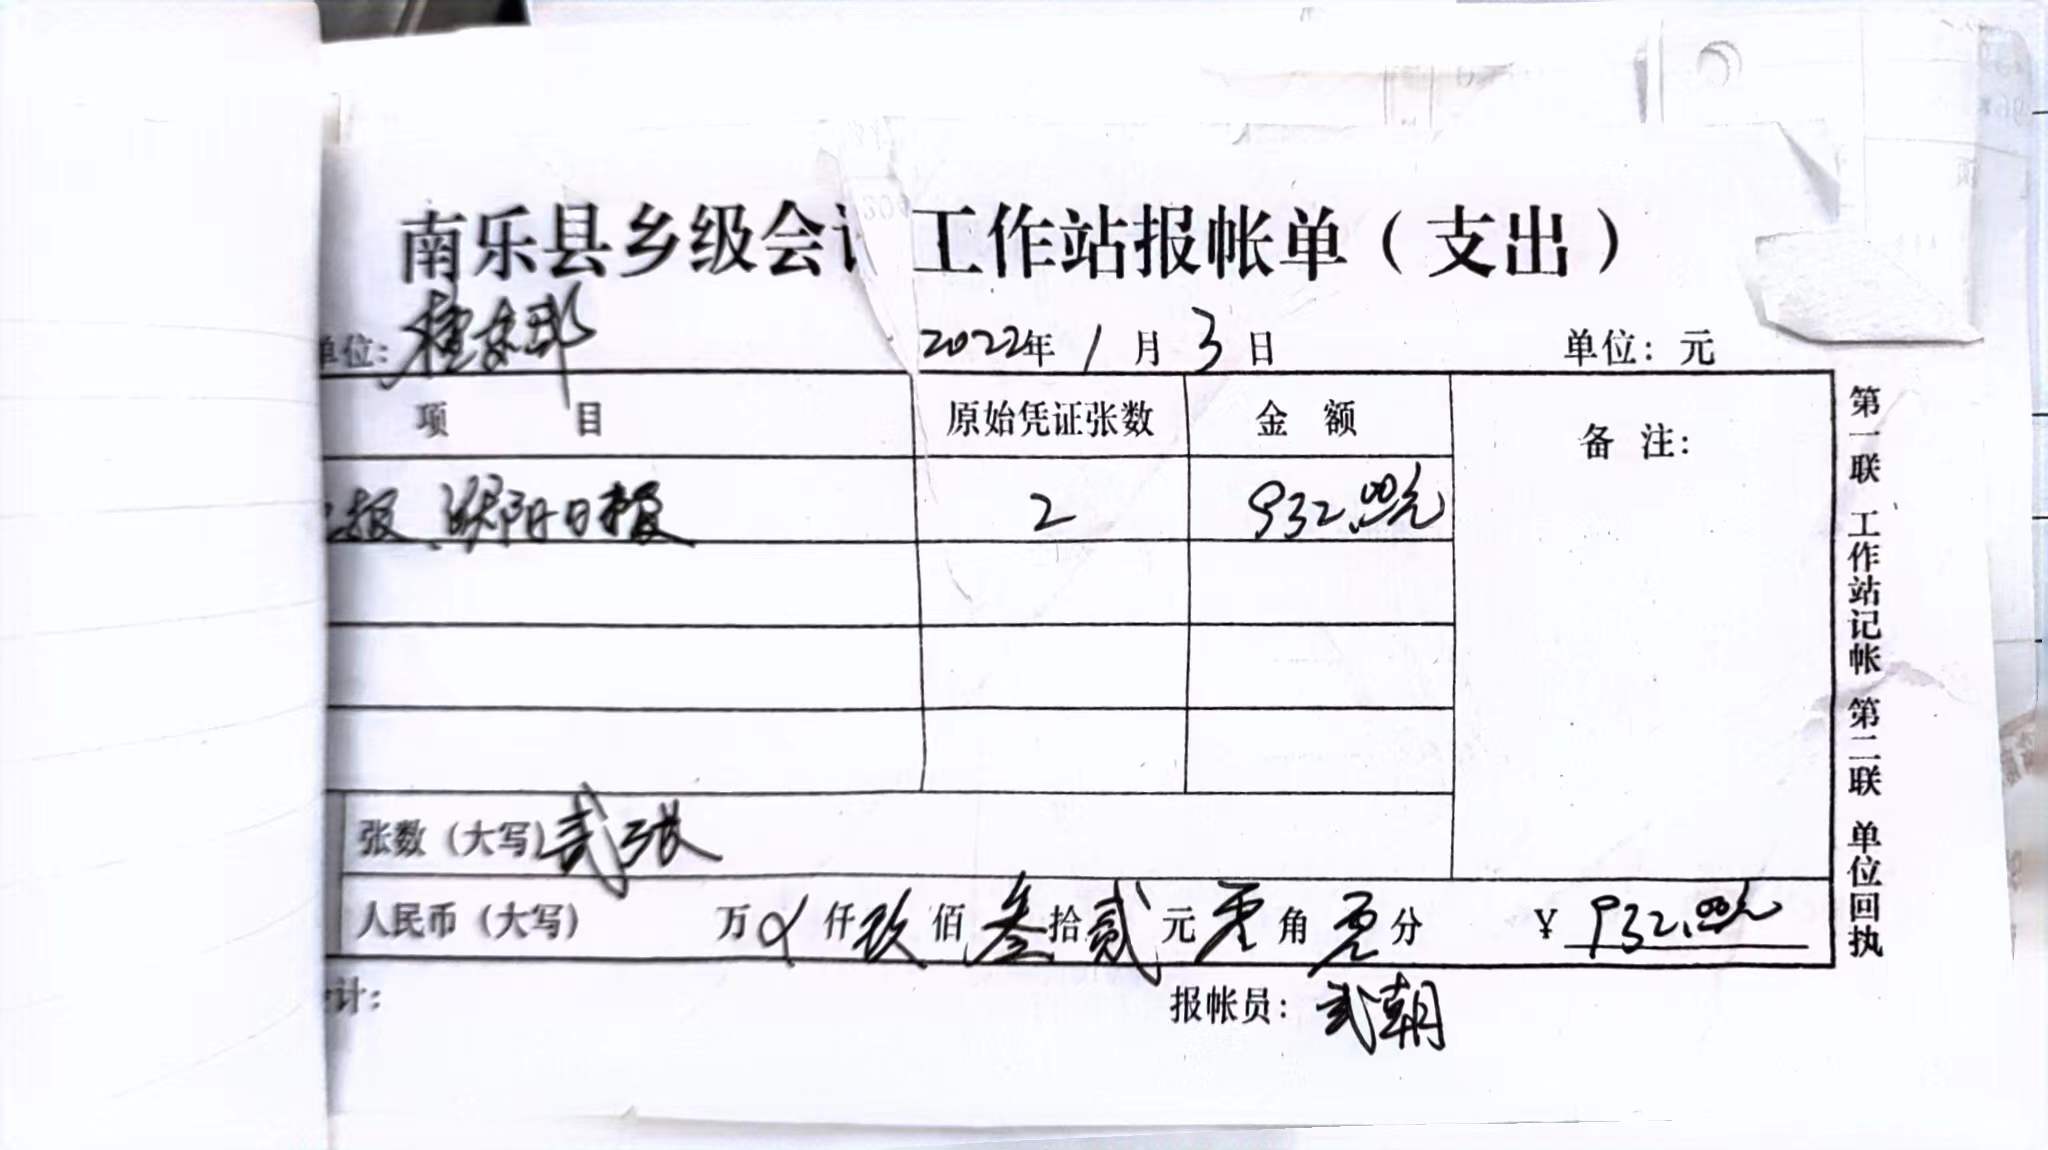 南乐县乡级会计工作站报帐单（支出）
单位： 2022年1月3日 单位：元
项 目 原始凭证张数 金 额 备 注：
报、濮阳日报 2 932.00元
张数（大写）贰张
人民币（大写） 万 仟玖佰叁拾贰元零角零分 ¥932.00元
计： 报帐员：武朝
第一联 工作站记帐 第二联 单位回执